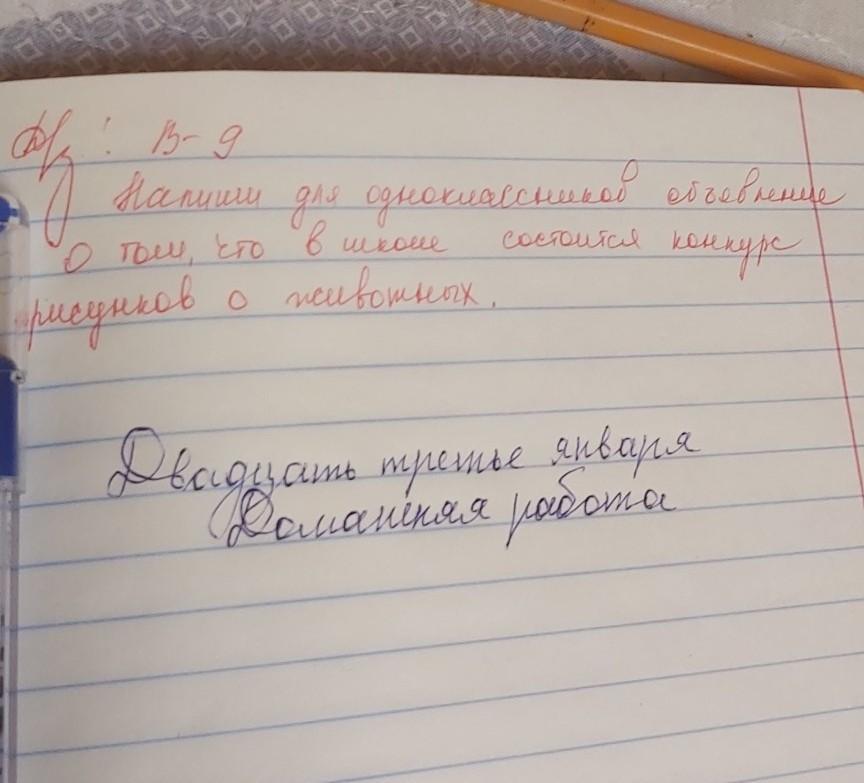 Д/з: В-9
Напиши для одноклассников объевление
о том, что в школе состоится конкурс
рисунков о животных.
Двадцать третье января
Домашняя работа